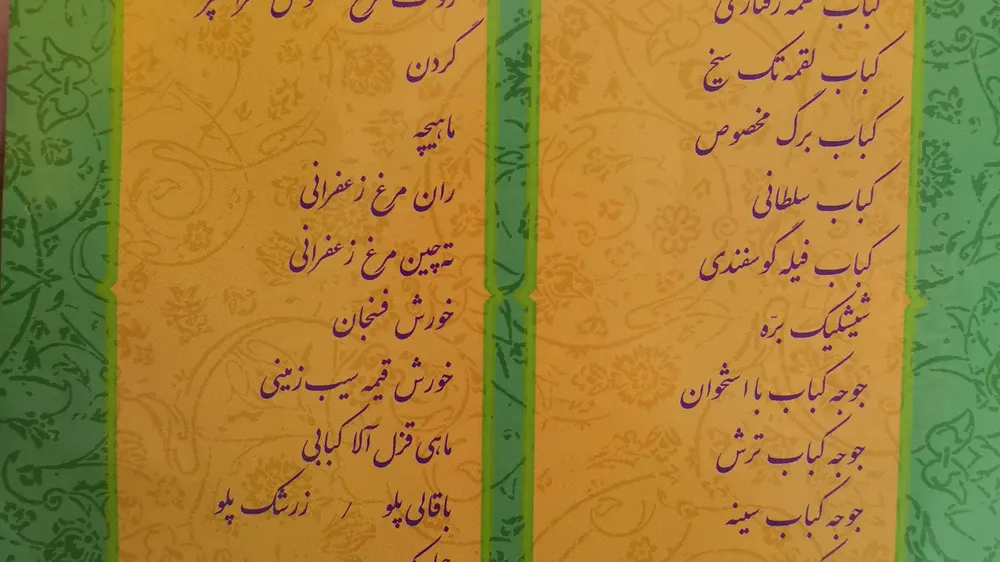 کباب لقمه تک سیخ
کباب برگ مخصوص
کباب سلطانی
کباب فیله گوسفندی
شیشلیک برّه
جوجه کباب با استخوان
جوجه کباب ترش
جوجه کباب سینه
گردن
ماهیچه
ران مرغ زعفرانی
ته چین مرغ زعفرانی
خورش فسنجان
خورش قیمه سیب زمینی
ماهی قزل آلا کبابی
باقالی پلو / زرشک پلو